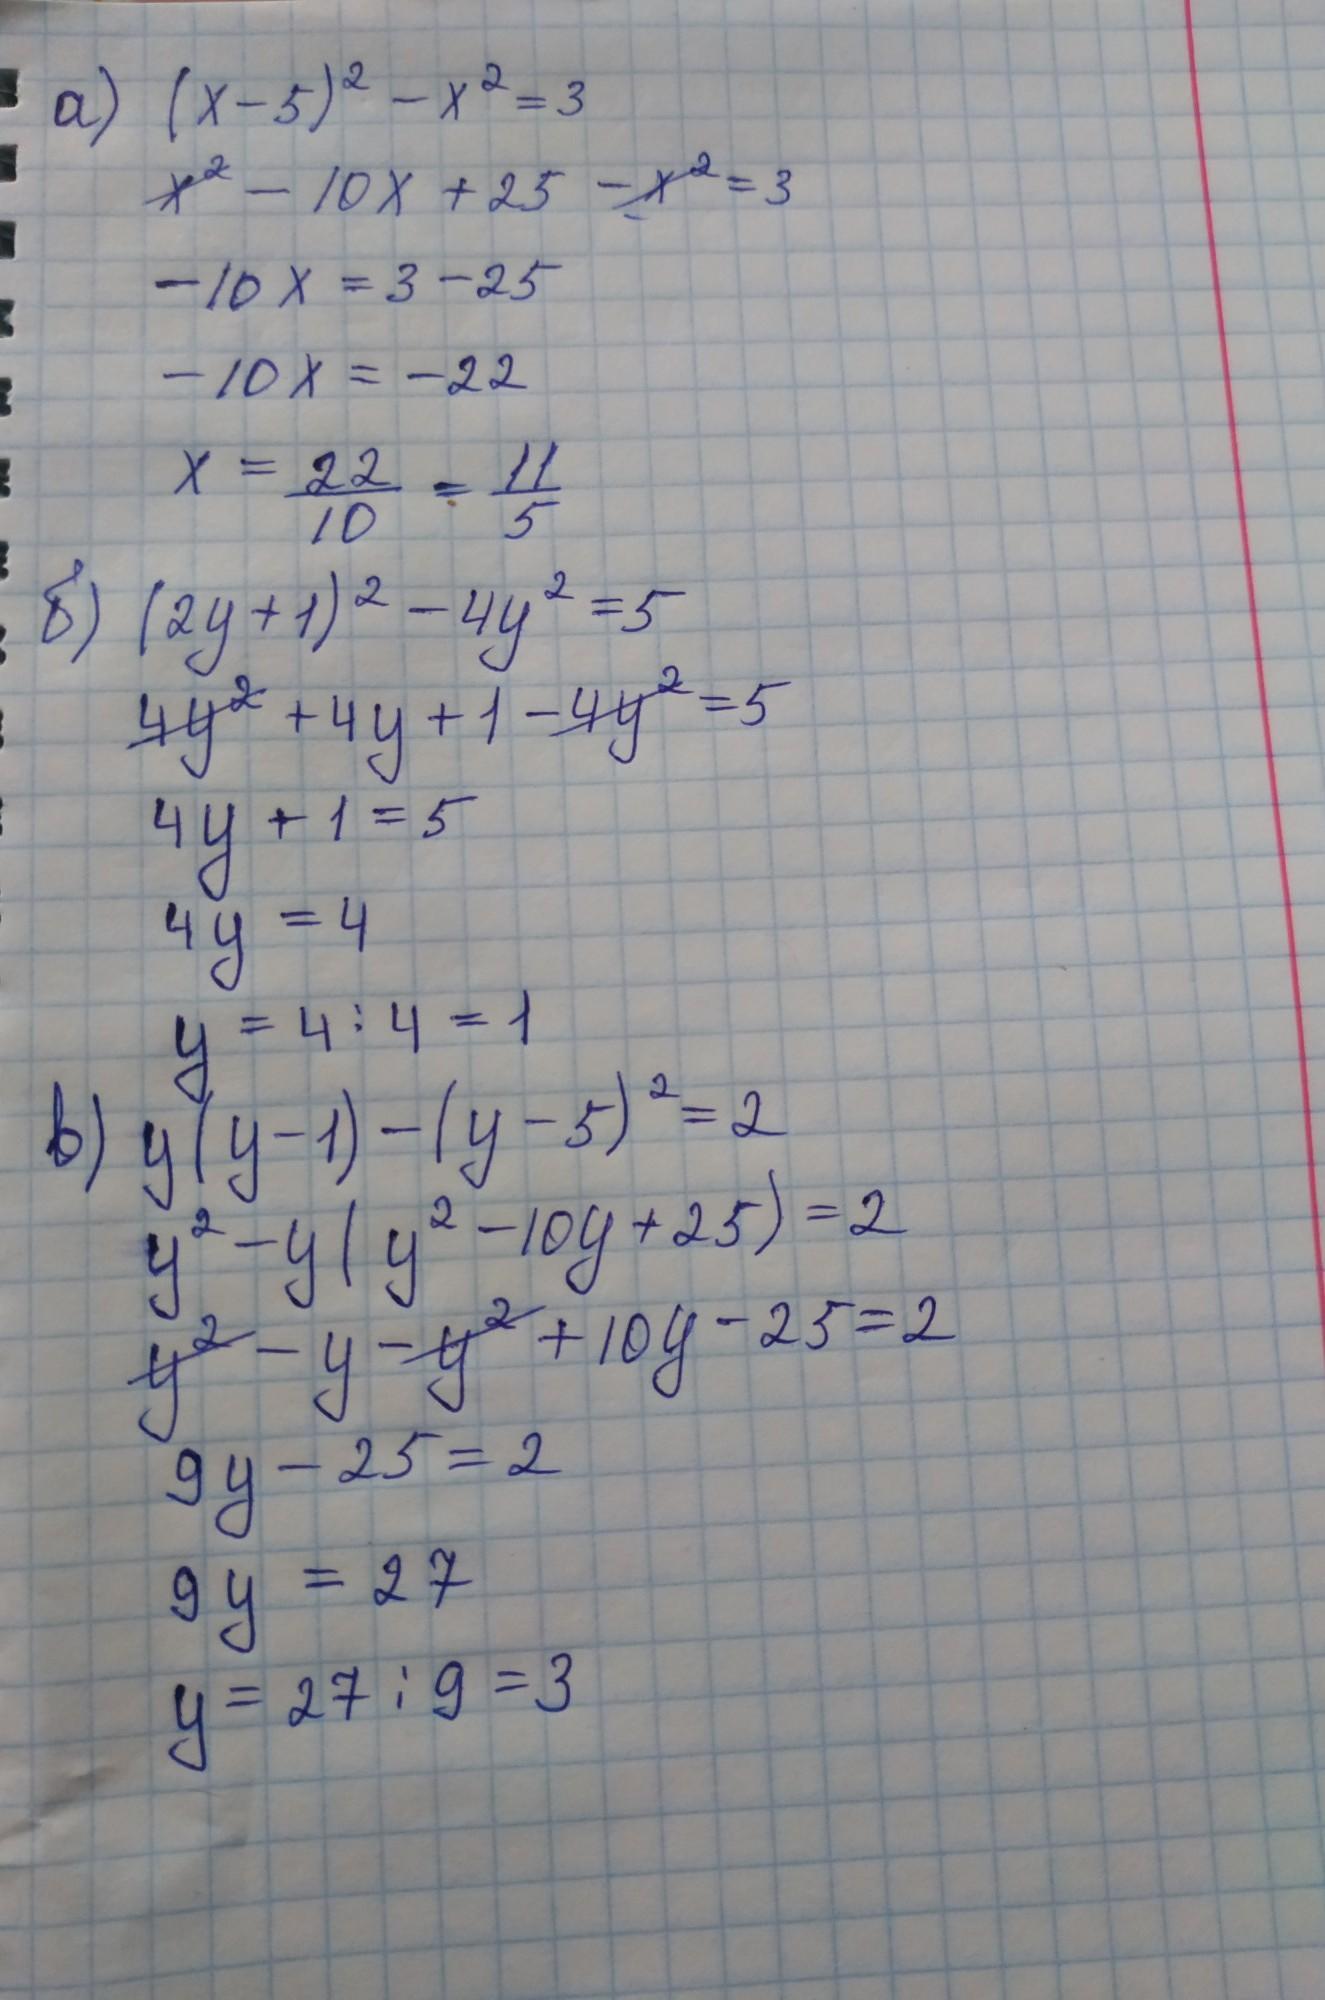 а) (x-5)² - x² = 3
x² - 10x + 25 - x² = 3
-10x = 3 - 25
-10x = -22
x = 22/10 = 11/5
б) (2y+1)² - 4y² = 5
4y² + 4y + 1 - 4y² = 5
4y + 1 = 5
4y = 4
y = 4 : 4 = 1
в) y(y-1) - (y-5)² = 2
y² - y ( y² - 10y + 25) = 2
y² - y - y² + 10y - 25 = 2
9y - 25 = 2
9y = 27
y = 27 : 9 = 3